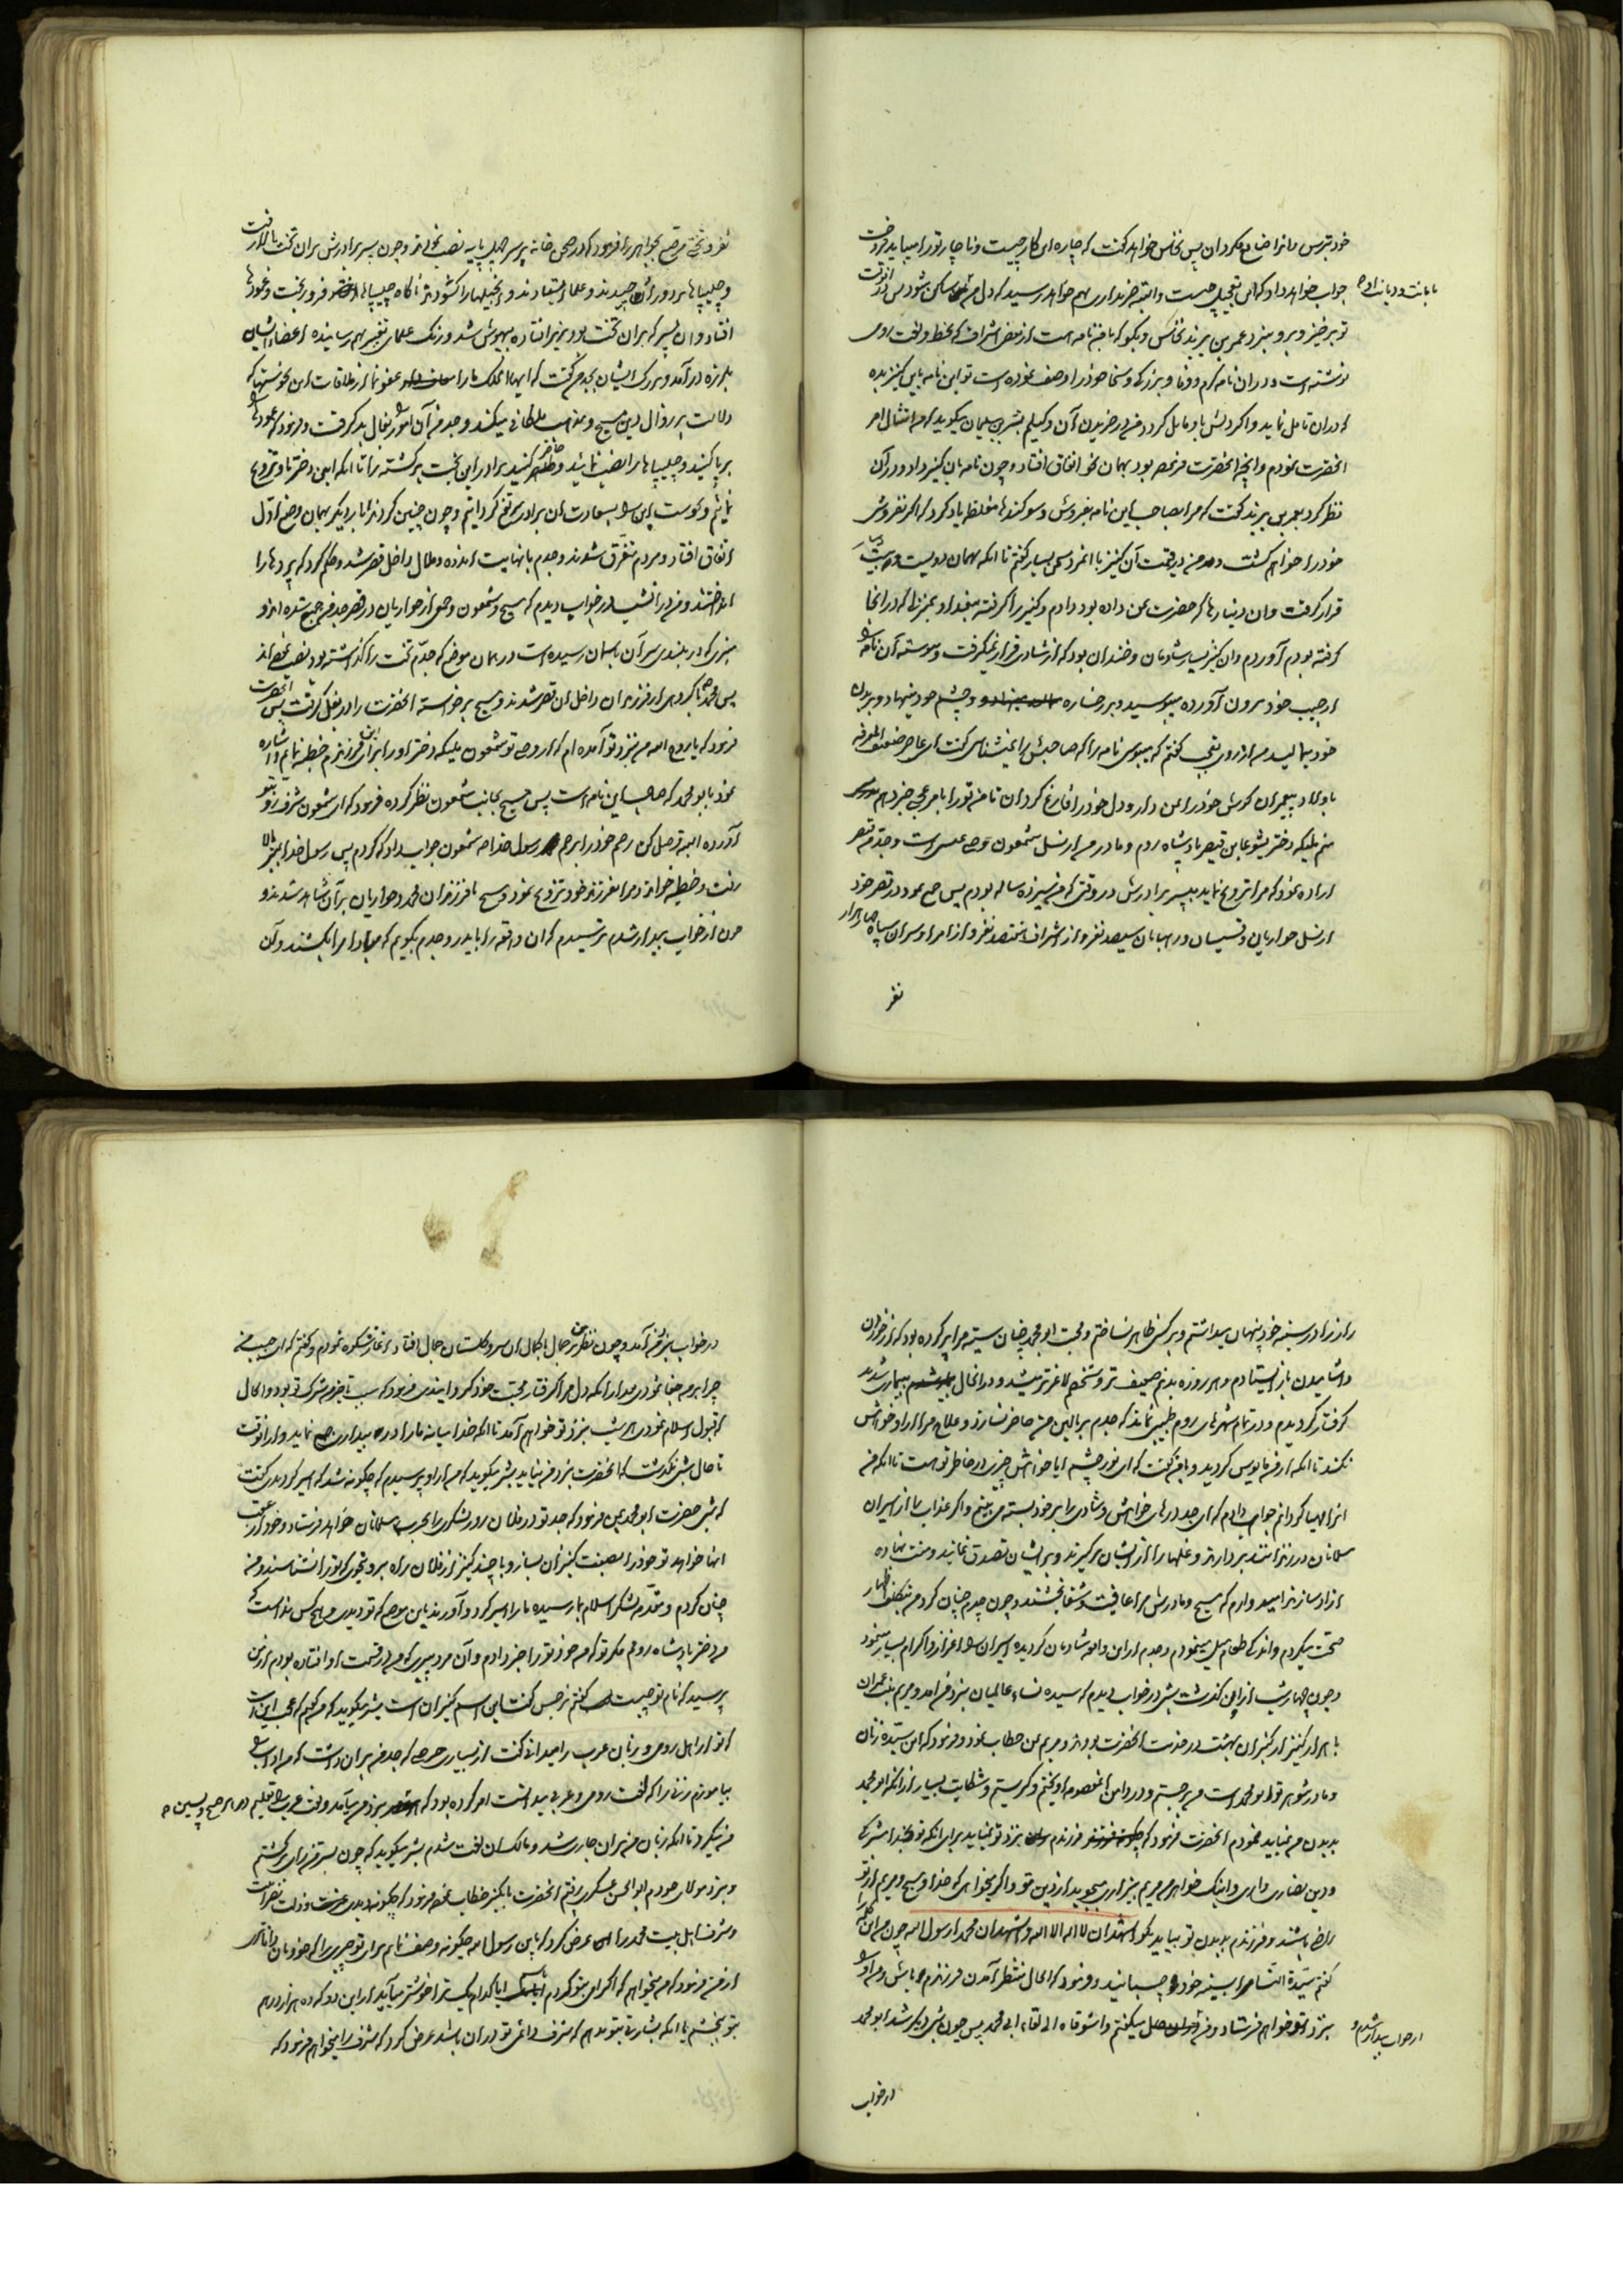 خود بترس و انرا ضایع مکردان پس نخاس خواهد کفت که چاره این کار چیست و ناچار تو را میباید فروخت
جواب خواهد داد که این تعجیل چیست و البته خریداری بهم خواهد رسید که دل من باو ساکن شود پس در آنوقت
بامانت و دیانت او
تو برخیز و برو بنزد عمر بن یزید نخاس و بکو که با من نامه است از بعض اشراف که بخط و لغت رومی
نوشته است و در ان نامه کرم و وفا و بزرکی و سخا خود را وصف نموده است تو این نامه باین کنیز بده
که در ان تامل نماید و اکر دلش باو مایل کردد من در خریدن آن وکیلم بشر بن سلیمان میکوید که من امتثال امر
انحضرت نمودم و انچه انحضرت فرموده بود بهمان نحو اتفاق افتاد و چون نامه بان کنیز دادم در آن
نظر کرد بعمر بن یزید کفت که مرا بصاحب این نامه بفروش و سوکندهای مغلظه یاد کرد که اکر نفروشی
خود را خواهم کشت و من در قیمت آن کنیز با انمرد سخن بسیار کفتم تا انکه بهمان دویست و بیست دینار
قرار کرفت و ان دینارها که حضرت بمن داده بود دادم و کنیز را کرفته ببغداد بمنزلی که در انجا
کرفته بودم آوردم و ان کنیز بسیار شادمان و خندان بود که از شادی قرار نمیکرفت و پیوسته آن نامه را
از جیب خود برون آورده میبوسید و بر رخساره و چشم خود مینهاد و بر بدن
خود میمالید من از روی تعجب کفتم که میبوسی نامه را که صاحبش را نمیشناسی کفت ای عاجز ضعیف المعرفه
باولاد پیغمبران کوش خود را بمن دار و دل خود را فارغ کردان تا من تو را بامر عجیبی خبر دهم بدرستی
منم ملیکه دختر یشوعا بن قیصر پادشاه روم و مادر من از نسل شمعون وصی عیسی است و جدم قیصر
اراده نمود که مرا تزویج نماید به پسر برادرش در وقتی که من سیزده ساله بودم پس جمع نمود در قصر خود
از نسل حواریان و قسیسان و رهبانان سیصد نفر و از اشراف هفتصد نفر و از امرا و سران سپاه چهار هزار
نفر
نفر و تختی مرصع بجواهر را فرمود که در صحن خانه بر سر چهل پایه نصب نمودند و چون پسر برادرش بر ان تخت بالا رفت
و چلیپاها بر دور او چیدند و علما ایستادند و انجیلها را کشودند ناکاه چلیپاها فرو ریخت و عمودها
افتاد و ان پسر که بر ان تخت بود بزیر افتاده بیهوش شد و رنک علمای تغییر بهم رسانیده اعضاء ایشان
بلرزه در آمد و بزرک ایشان بجدم کفت که ایها الملک ما را عفو نما از ملاقات این نحوستها که
دلالت بر زوال دین مسیح و مذهب ملکائی میکند و جدم آن امور را بفال بد کرفت و فرمود که عمودها را
بر پا کنید و چلیپاها را نصب نمائید و حاضر کنید برادر این بخت بر کشته را تا انکه این دختر باو تزویج
نمایم و نحوست این را بسعادت ان برادر مرتفع کردانم و چون چنین کردند بار دیکر بهمان وضع اول
اتفاق افتاد و مردم متفرق شدند و جدم با نهایت اندوه و ملال داخل قصر شد و حکم کرد که پردها را
انداختند و من در انشب در خواب دیدم که مسیح و شمعون و جمعی از حواریان در قصر جدم جمع شده اند و
منبری که در بلندی سر آن باسمان رسیده است در همان موضع که جدم تخت را کذاشته بود نصب نموده اند
پس محمد با کروهی از فرزندان داخل ان قصر شدند و مسیح بر خواسته انحضرت را در بغل کرفت پس انحضرت
فرمود که یا روح الله من بنزد تو آمده ام که از وصی تو شمعون ملیکه دختر او را برای این فرزندم خطبه نمایم و اشاره
نمود بابو محمد که صاحب این نامه است پس مسیح بجانب شمعون نظر کرده فرمود که ای شمعون شرف رو بتو
آورده البته وصل کن رحم خود را برحم رسول خدا شمعون جواب داد که کردم پس رسول خدا بمنبر بالا
رفت و خطبه خواند و مرا بفرزند خود تزویج نمود و مسیح با فرزندان محمد و حواریان بر آن شاهد شدند و
چون از خواب بیدار شدم ترسیدم که ان واقعه را با پدر و جدم بکویم که مبادا مرا بکشند و آن
راز را در سینه خود پنهان میداشتم و بر کسی ظاهر نساختم و محبت ابو محمد چنان سینه مرا پر کرده بود که از خوردن
و اشامیدن باز ایستادم و هر روزه بدنم ضعیف تر و شخصم لاغرتر میشد و در انحال بیماری شدید
کرفتار کردیدم و در تمام شهرهای روم طبیبی نماند که جدم بر بالین من حاضر نسازد و علاج مرا از او خواهش
نکند تا انکه از من مایوس کردید و بمن کفت که ای نور چشم ایا خواهش چیزی در خاطر تو است تا انکه من
انرا مهیا کردانم جواب دادم که ای جد درهای خواهش و شادی را بر خود بسته می بینم و اکر عذاب را از اسیران
مسلمانان در زندانند بردارند و غلها را از ایشان بر کیرند و بر ایشان تصدق نمائید و منت نهاده
آزاد سازند امید دارم که مسیح و مادرش مرا عافیت و شفا بخشند و چون جدم چنان کرد من بتکلف اظهار
صحت میکردم و اندکی طعام میل مینمودم و جدم از این واقعه شادمان کردیده اسیران را اعزاز و اکرام بسیار مینمود
و چون چهار شب از این کذشت شبی در خواب دیدم که سیده نساء عالمیان بنزد من آمد و مریم بنت عمران
با هزار کنیز از کنیزان بهشت در خدمت انحضرت بودند و مریم بمن خطاب نمود و فرمود که این سیدهٔ زنان
و مادر شوهر تو ابو محمد است من بر جستم و در دامن انمعصومه آویختم و کریستم و شکایت بسیار از انکه ابو محمد
بدیدن من نمیاید نمودم انحضرت فرمود که فرزندم بنزد تو نمیاید برای انکه تو بخدا مشرکی
و دین نصاری داری و اینک خواهرم مریم بیزاری میجوید از دین تو و اکر میخواهی که خدا و مسیح و مریم از تو
راضی باشند و فرزندم بدیدن تو بیاید بکو اشهد ان لا اله الا الله و اشهد ان محمد رسول الله چون من این کلمه را
کفتم سیدة النسا مرا بسینه خود چسبانید و فرمود که الحال منتظر آمدن فرزندم باش و من او را
بنزد تو خواهم فرستاد و من میکفتم واشوقاه الی لقاء ابی محمد پس چون شب دیکر شد ابو محمد
از خواب بیدار شدم و
در خواب
در خواب بنزد من آمد و چون نظر من بر جمال با کمال ان سرو کلستان جمال افتاد آغاز شکوه نمودم و کفتم که ای حبیب من
چرا بر من جفا نمودی بعد از انکه دل مرا کرفتار محبت خود کردانیدی فرمود که سبب تاخیرم شرک تو بود و الحال
که قبول اسلام نمودی هر شب بنزد تو خواهم آمد تا انکه خدا میانه ما را در بیداری جمع نماید و از انوقت
تا حال شبی نکذشت که انحضرت بنزد من نیاید بشر میکوید که من از او پرسیدم که چکونه شد که اسیر کردیدی کفت
که شبی حضرت ابو محمد بمن فرمود که جد تو در فلان روز لشکری را بحرب مسلمانان خواهد فرستاد و خود از عقب
انها خواهد تو خود را بصفت کنیزان بساز و با چند کنیز از فلان راه برو بنحوی که تو را نشناسند و من
چنان کردم و مقدم لشکر اسلام بما رسیده ما را اسیر کرد و آوردند باین موضع که تو دیدی و هیچکس ندانست که
من دختر پادشاه رومم مکر تو که من خود تو را خبر دادم و آن مرد پیری که من در قسمت او افتاده بودم از من
پرسید که نام تو چیست کفتم نرجس کفت این اسم کنیزان است بشر میکوید که من کفتم که عجب این است
که تو از اهل رومی و زبان عرب را میدانی کفت از بسیاری حرصی که جدم بر ان داشت که من ادب را
بیاموزم زنی را که لغت رومی و عربی میدانست امر کرده بود که بنزد من میآمد و لغت عرب را تعلیم
در هر صبح و پسین
من میکرد تا انکه زبان من بر ان جاری شد و مالک لسان لغت شدم بشر میکوید که چون بسر من رای برکشتم
و بنزد مولای خودم ابو الحسن عسکری رفتم انحضرت با کنیز خطاب نموده فرمود که چکونه دیدی عزت و ذلت نصرانیت
و شرف اهل بیت محمد را عرض کرد که یابن رسول الله چکونه وصف نمایم برای تو چیزی را که خود بان داناتری
از من فرمود که من میخواهم که اکرامی بتو کردم ایا کدام یک ترا خوشتر میآید از این دو که ده هزار درهم
بتو بخشم یا انکه بشارتی بتو دهم که شرف دائمی تو در ان باشد عرض کرد که شرف را میخواهم فرمود که